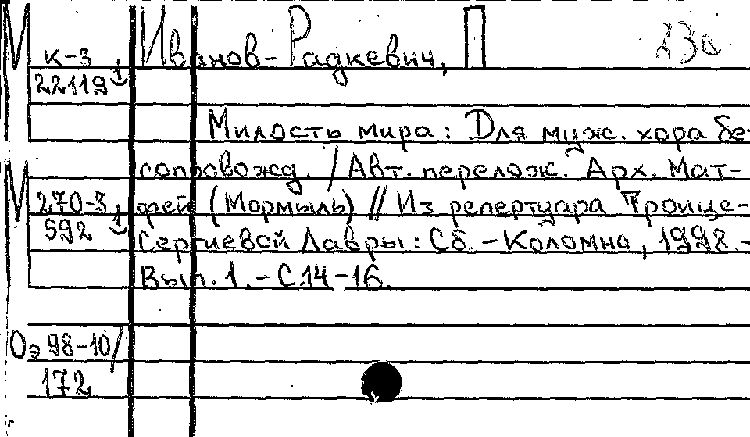 М К-3 Иванов-Радкевич, П 230
22119
Милость мира: Для муж. хора бе
сопровожд. / Авт. перелож. Арх. Мат-
М 270-3 фей (Мормыль) // Из репертуара Троице-
592 Сергиевой Лавры: Сб. - Коломна, 1998 -
Вып. 1. - С.14-16.
Оэ 98-10/
172